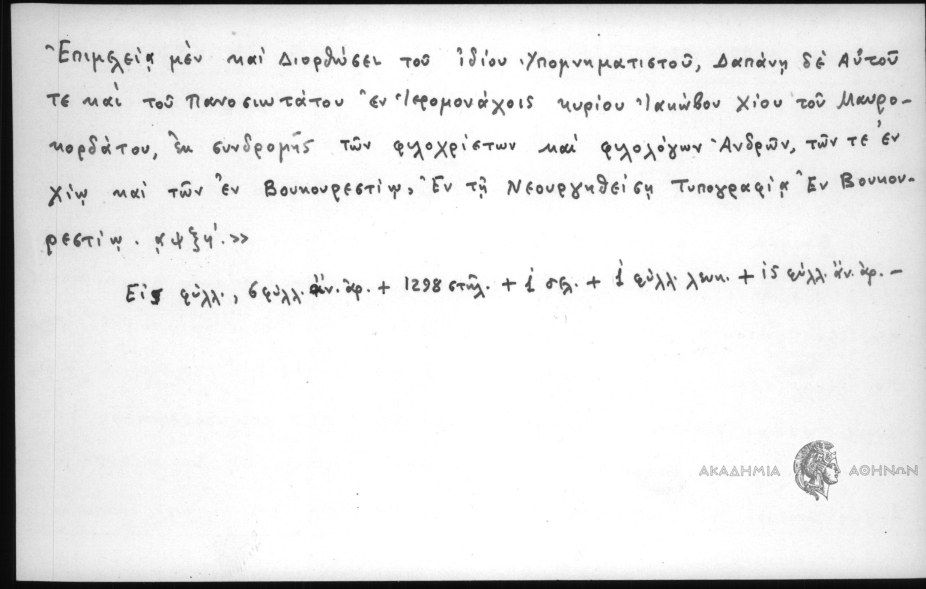 Ἐπιμελείᾳ μὲν καὶ Διορθώσει τοῦ ἰδίου Ὑπομνηματιστοῦ, Δαπάνῃ δὲ Αὐτοῦ
τε καὶ τοῦ Πανοσιωτάτου ἐν Ἱερομονάχοις κυρίου Ἰακώβου Χίου τοῦ Μαυρο-
κορδάτου, ἐκ συνδρομῆς τῶν φιλοχρίστων καὶ φιλολόγων Ἀνδρῶν, τῶν τε ἐν
Χίῳ καὶ τῶν ἐν Βουκουρεστίῳ, Ἐν τῇ Νεουργηθείσῃ Τυπογραφίᾳ Ἐν Βουκου-
ρεστίῳ. αψξη΄.»
Εἰς φύλλ., 6 φύλλ. ἄν. ἀρ. + 1298 στῆλ. + 1 σελ. + 1 φύλλ. λευκ. + 15 φύλλ. ἄν. ἀρ. –
ΑΚΑΔΗΜΙΑ ΑΘΗΝΩΝ